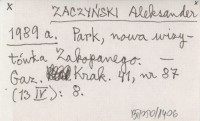 x ZACZYŃSKI Aleksander x
1989 a. Park, nowa wizy-
tówka Zakopanego. —
Gaz. Krak. 41, nr 87
(13 IV): 8.